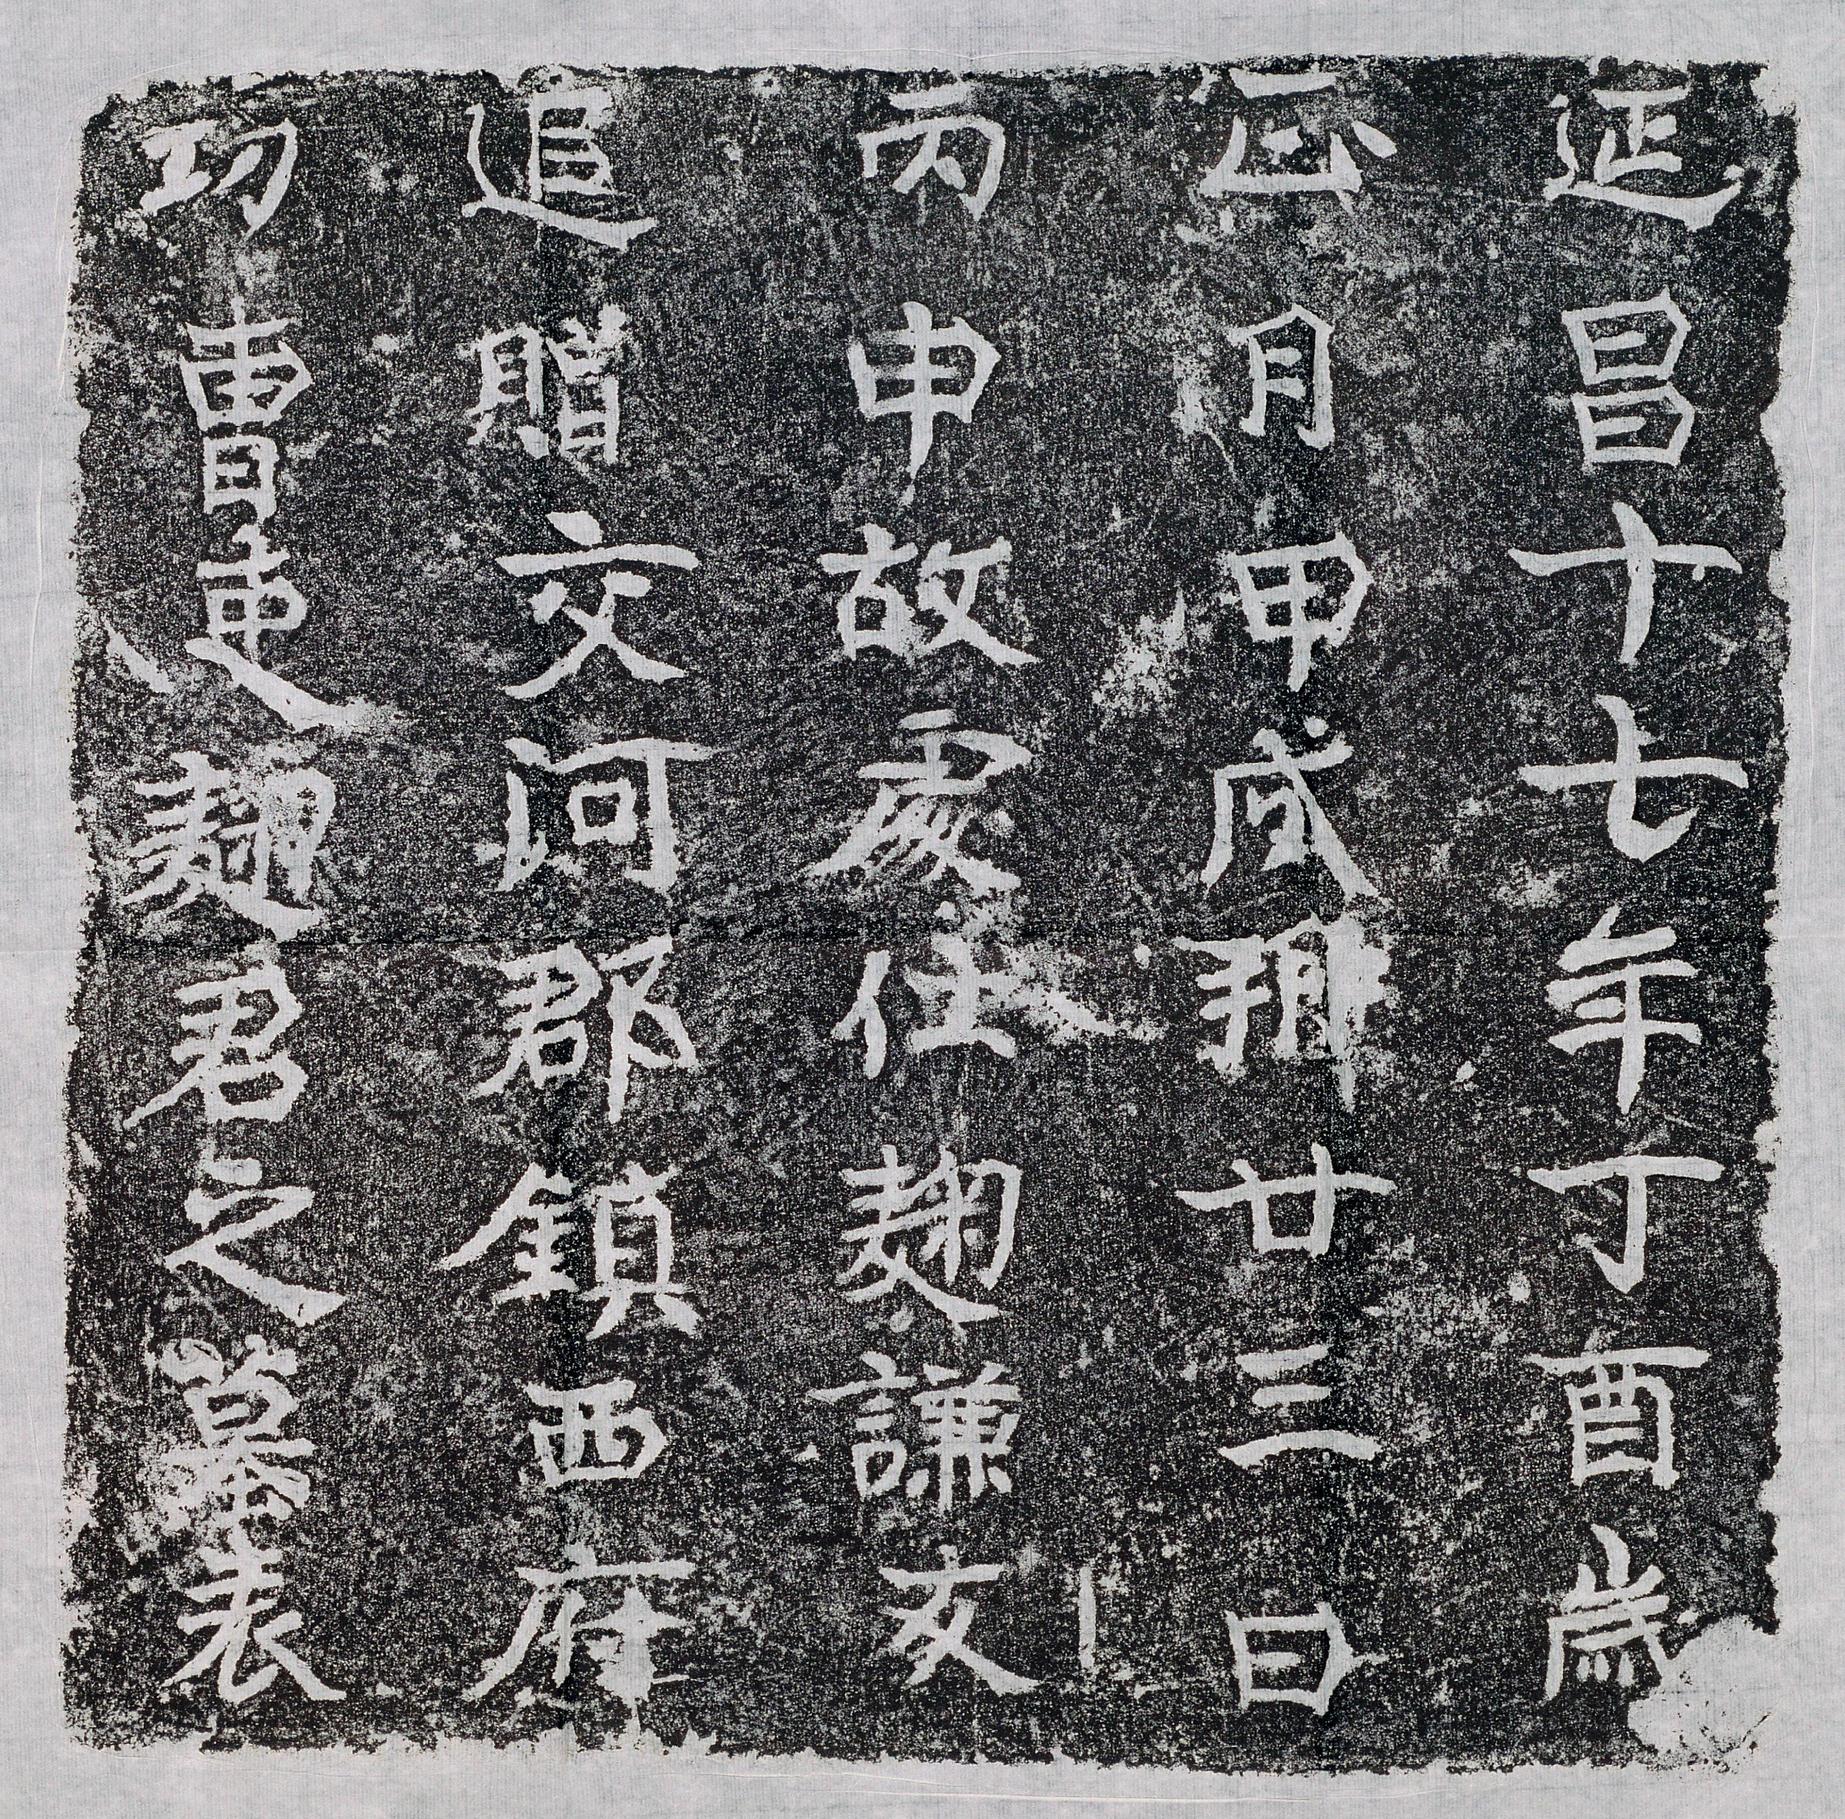 延昌十七年丁酉歲
正月甲戌朔廿三日
丙申故處仕麴謙友
追贈交河郡鎮西府
功曹吏麴君之墓表